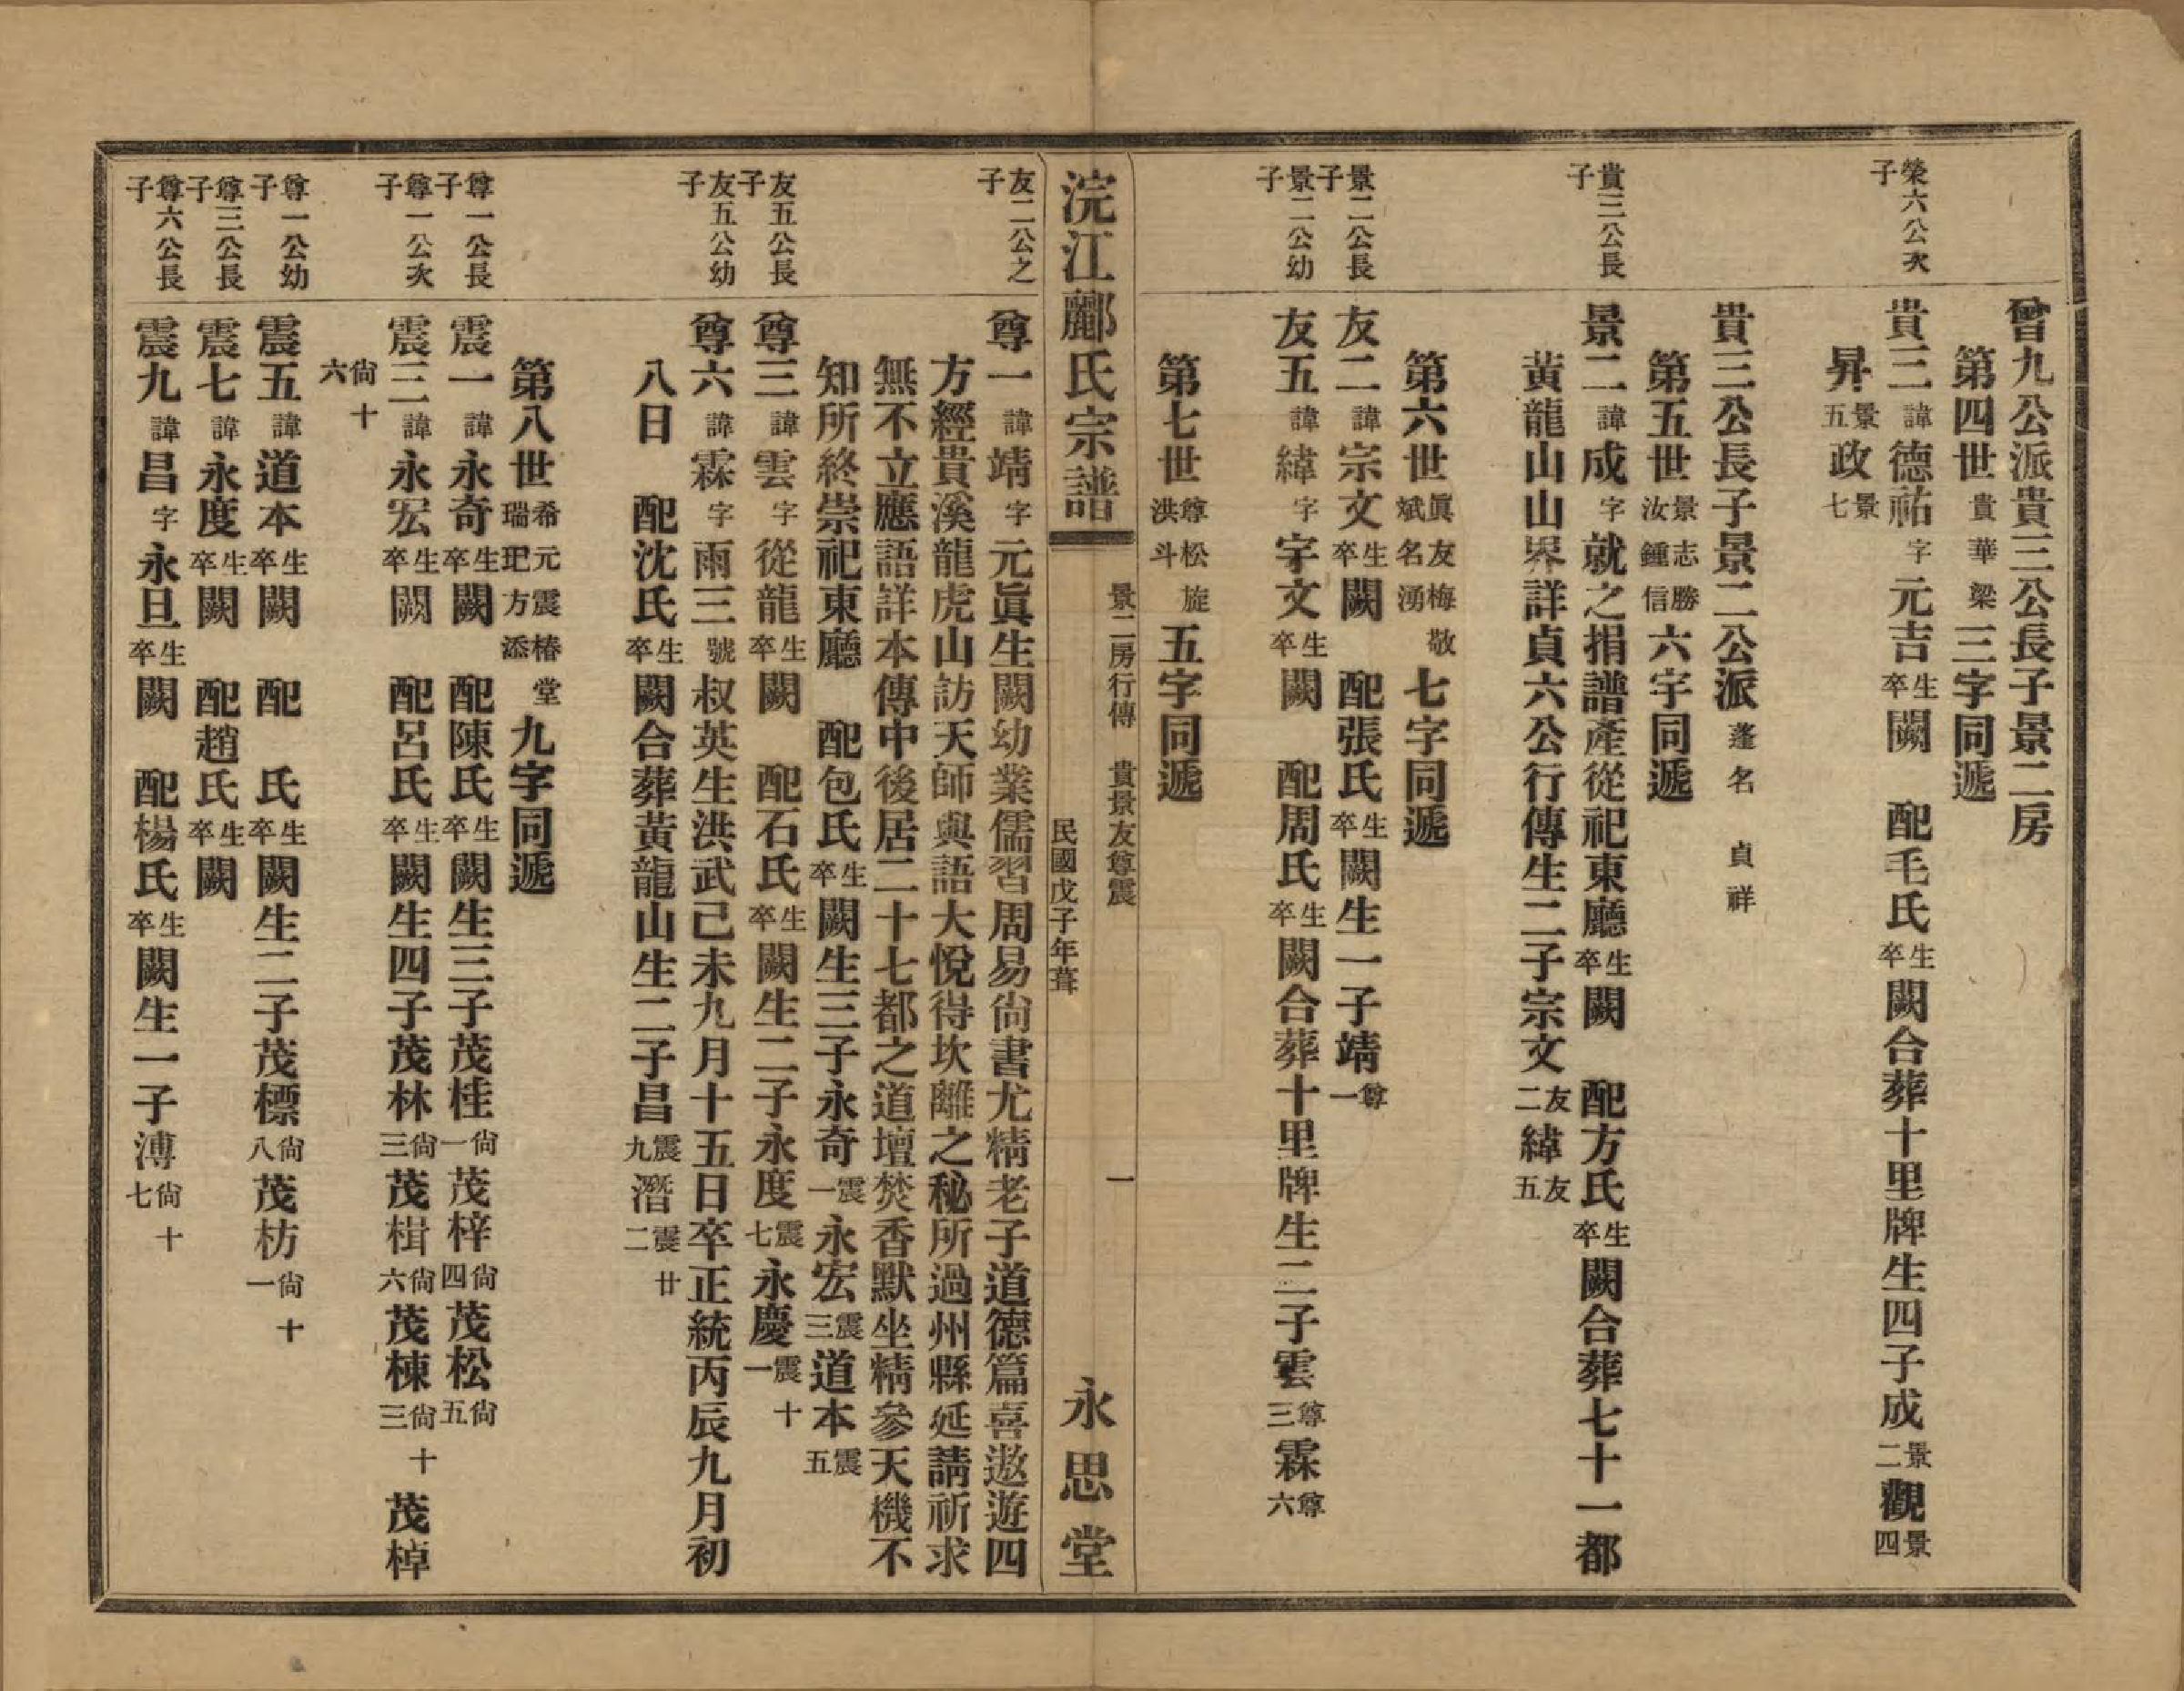 曾九公派貴三公長子景二房
第四世 貴華梁 三字同遞
榮六公次子
貴三 諱 德祐 字 元吉 生卒 闕 配毛氏 生卒 闕合葬十里牌生四子成 景二 觀 景四
昇 景五 政 景七
貴三公長子景二公派 蓬名 貞祥
第五世 景志勝汝鍾信 六字同遞
貴三公長子
景二 諱 成 字 就之捐譜產從祀東廳 生卒 闕 配方氏 生卒 闕合葬七十一都
黃龍山山界詳貞六公行傳生二子宗文 友二 緯 友五
第六世 眞友梅敬斌名湧 七字同遞
景二公長子
友二 諱 宗文 生卒 闕 配張氏 生卒 闕生一子靖 尊一
景二公幼子
友五 諱 緯 字 字文 生卒 闕 配周氏 生卒 闕合葬十里牌生二子雲 尊三 霖 尊六
第七世 尊松旋洪斗 五字同遞
浣江酈氏宗譜
景二房行傳 貴景友尊震
一
民國戊子年葺
永思堂
友二公之子
尊一 諱 靖 字 元眞生闕幼業儒習周易尙書尤精老子道德篇喜遨遊四
方經貴溪龍虎山訪天師與語大悅得坎離之秘所過州縣延請祈求
無不立應語詳本傳中後居二十七都之道壇焚香默坐精參天機不
知所終崇祀東廳 配包氏 生卒 闕生三子永奇 震一 永宏 震三 道本 震五
友五公長子
尊三 諱 雲 字 從龍 生卒 闕 配石氏 生卒 闕生二子永度 震七 永慶 震十一
友五公幼子
尊六 諱 霖 字 雨三 號 叔英生洪武己未九月十五日卒正統丙辰九月初
八日 配沈氏 生卒 闕合葬黃龍山生二子昌 震九 潛 震廿二
第八世 希元震椿堂瑞玘方添 九字同遞
尊一公長子
震一 諱 永奇 生卒 闕 配陳氏 生卒 闕生三子茂桂 尙一 茂梓 尙四 茂松 尙五
尊一公次子
震三 諱 永宏 生卒 闕 配呂氏 生卒 闕生四子茂林 尙三 茂楫 尙六 茂棟 尙十三 茂棹
尙十六
尊一公幼子
震五 諱 道本 生卒 闕 配 氏 生卒 闕生二子茂標 尙八 茂枋 尙十一
尊三公長子
震七 諱 永度 生卒 闕 配趙氏 生卒 闕
尊六公長子
震九 諱 昌 字 永旦 生卒 闕 配楊氏 生卒 闕生一子溥 尙十七